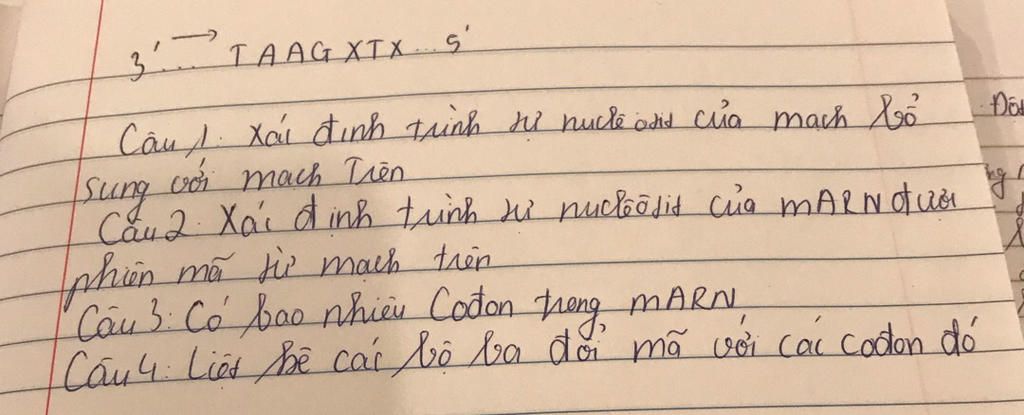 3' ... TAAGXTX ... 5'
Câu 1: Xác định trình tự nuclêôtit của mạch bổ
sung với mạch Trên
Câu 2: Xác định trình tự nuclêôtit của mARN được
phiên mã từ mạch trên
Câu 3: Có bao nhiêu Codon trong mARN
Câu 4: Liệt kê các bộ ba đối mã với các codon đó